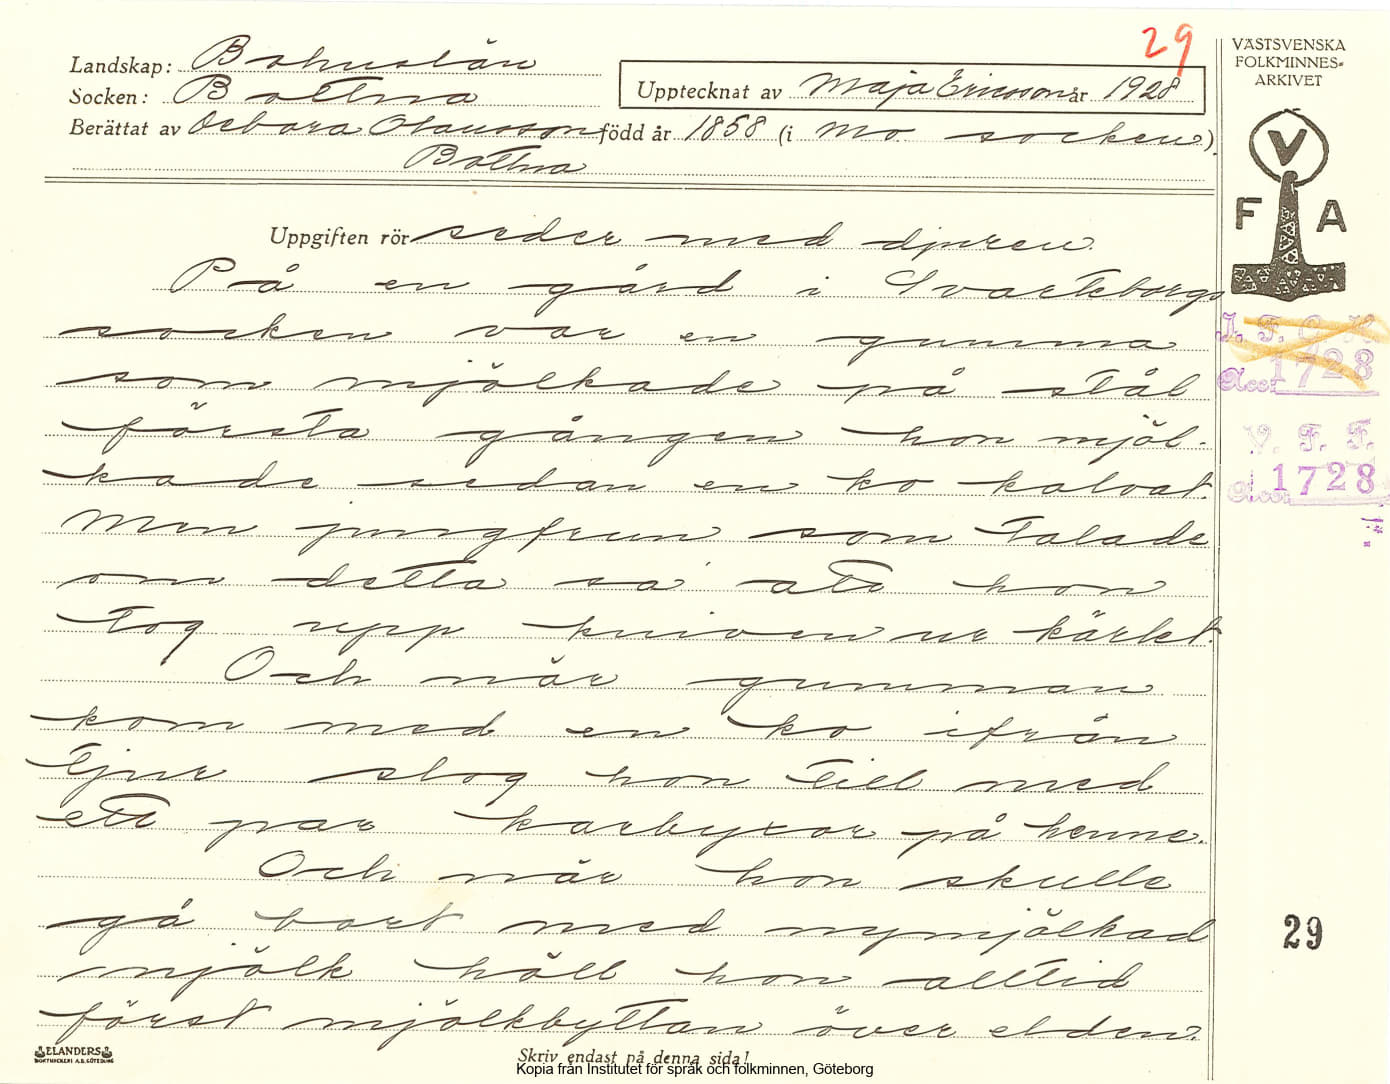 29
Landskap: Bohuslän
Socken: Bottna
Upptecknat av Maja Ericsson år 1928
Berättat av Debora Olausson född år 1858 (i Mo socken)
Bottna
VÄSTSVENSKA
FOLKMINNES-
ARKIVET
V
F A
Uppgiften rör seder med djuren.
På en gård i Svarteborgs
socken var en gumma
som mjölkade på stål
första gången hon mjöl-
kade sedan en ko kalvat.
Men jungfrun som talade
om detta sa' att hon
tog upp kniven ur kärlet.
Och när gumman
kom med en ko ifrån
tjur slog hon till med
ett par karbyxor på henne.
Och när hon skulle
gå bort med nymjölkad
mjölk höll hon alltid
först mjölkbyttan över elden.
I. F. G. H.
Acc. 1728
V. F. F.
Acc. 1728
29
ELANDERS
BOKTRYCKERI A.B. GÖTEBORG
Skriv endast på denna sida!
Kopia från Institutet för språk och folkminnen, Göteborg